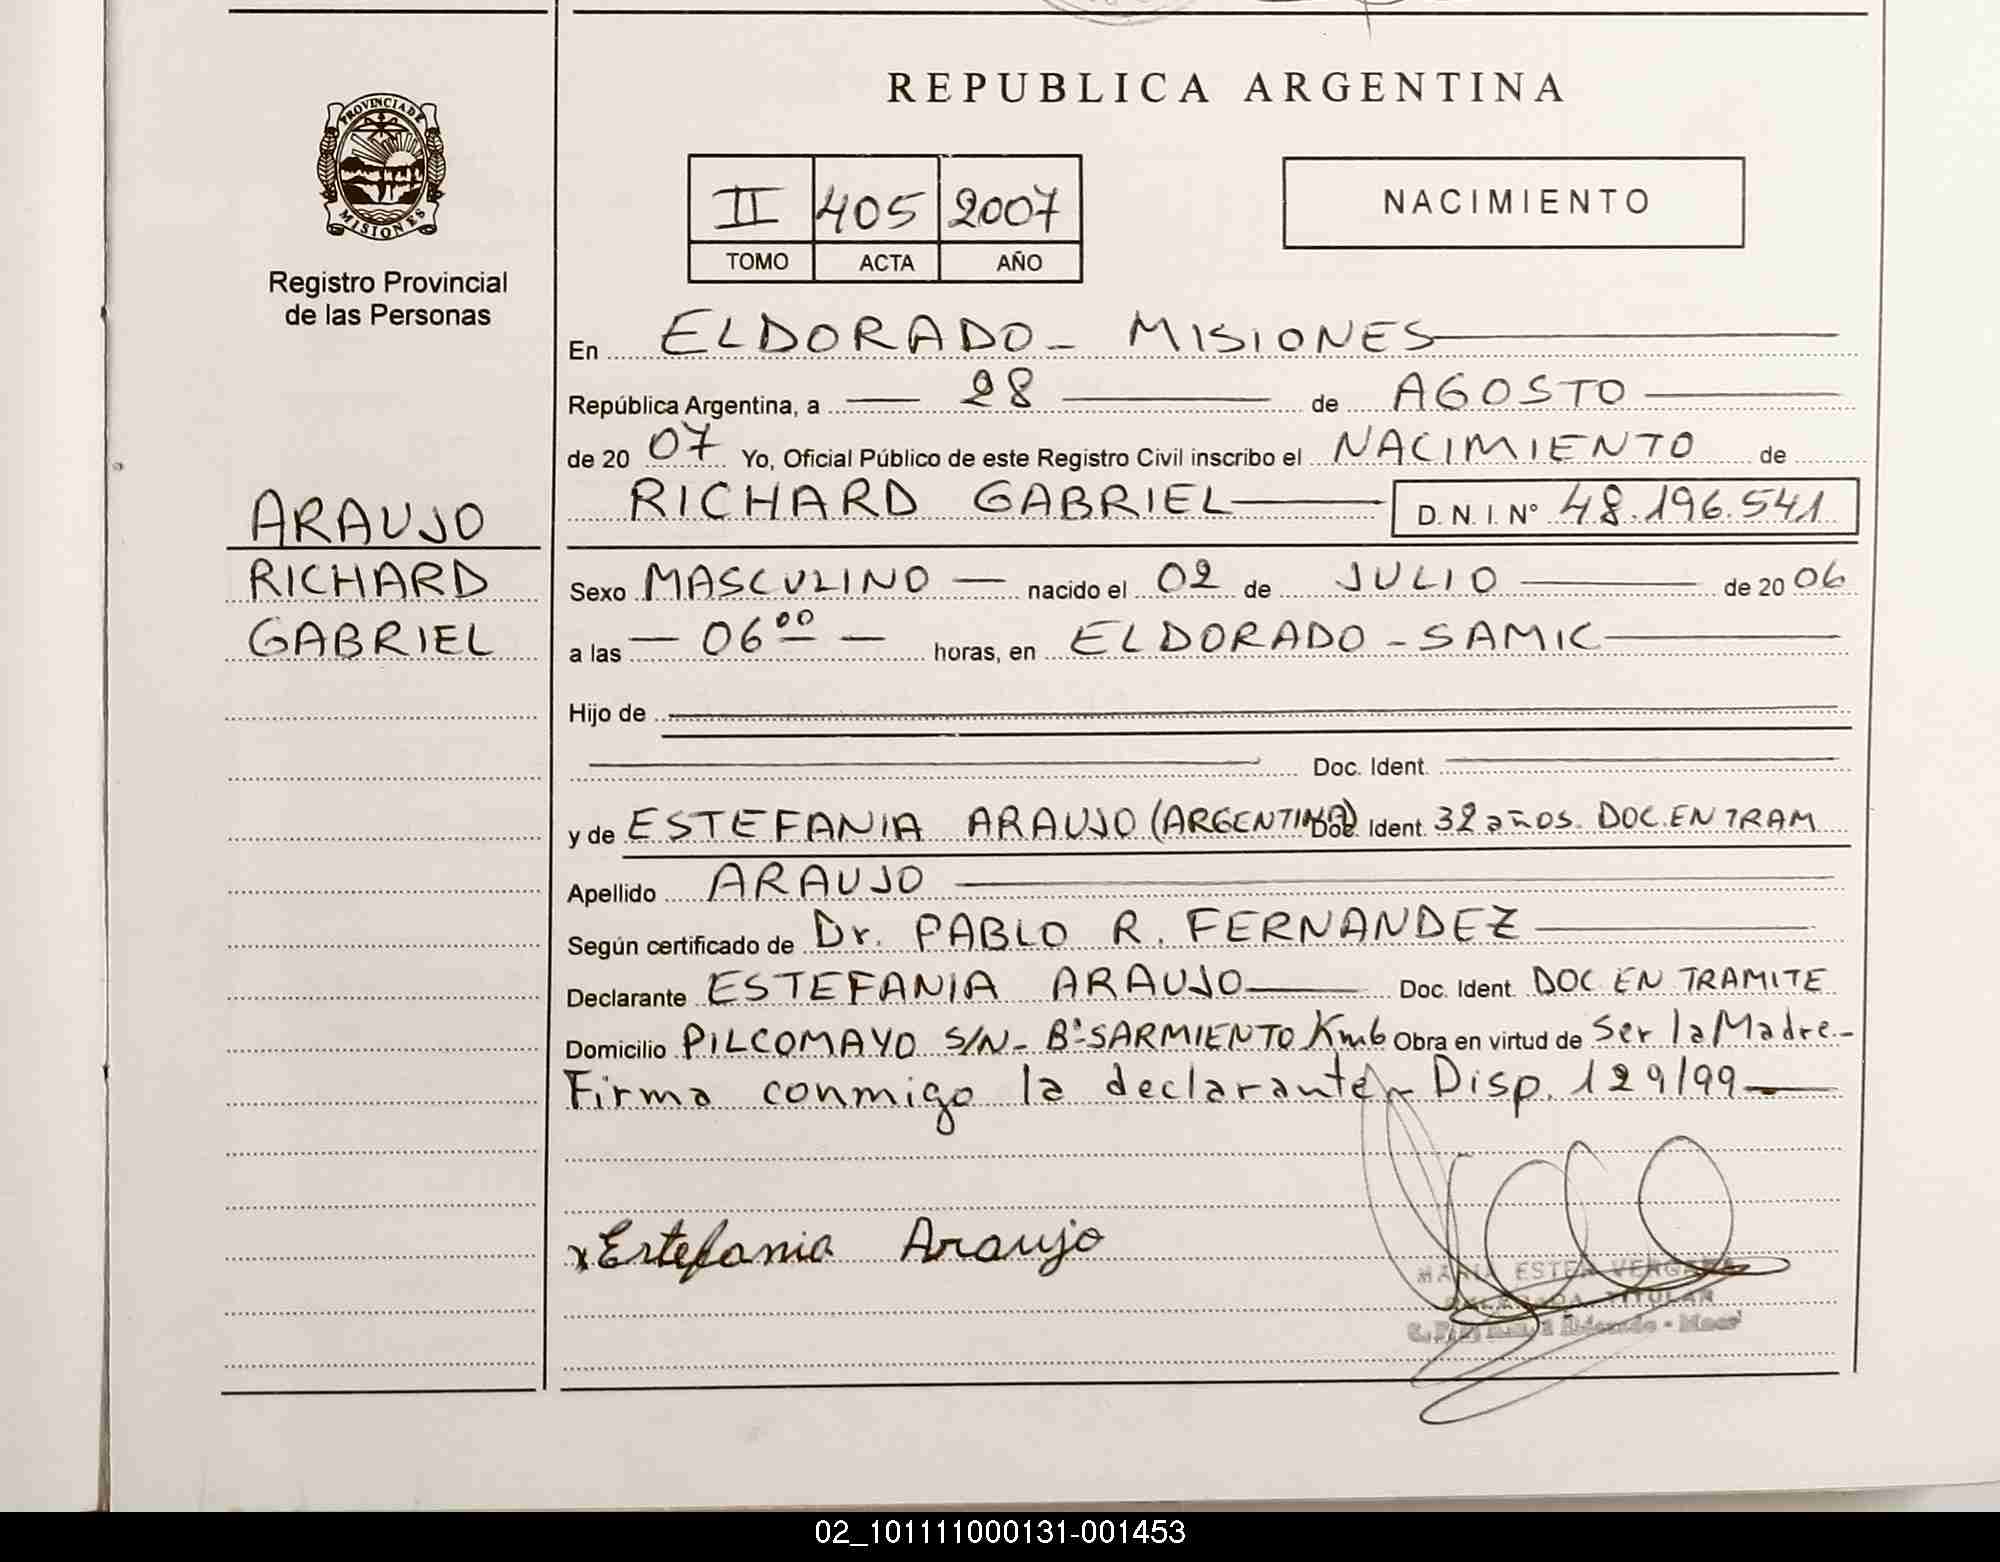 REPUBLICA ARGENTINA
PROVINCIA DE
MISIONES
Registro Provincial
de las Personas
II 405 2007
TOMO ACTA AÑO
NACIMIENTO
En ELDORADO - MISIONES
República Argentina, a 28 de AGOSTO
de 20 07 Yo, Oficial Público de este Registro Civil inscribo el NACIMIENTO de
RICHARD GABRIEL D. N. I. Nº 48.196.541
ARAUJO
RICHARD
GABRIEL
Sexo MASCULINO nacido el 02 de JULIO de 20 06
a las 06 00 horas, en ELDORADO - SAMIC
Hijo de
Doc. Ident.
y de ESTEFANIA ARAUJO (ARGENTINA) Doc. Ident. 32 años. DOC. EN TRAM
Apellido ARAUJO
Según certificado de Dr. PABLO R. FERNANDEZ
Declarante ESTEFANIA ARAUJO Doc. Ident. DOC EN TRAMITE
Domicilio PILCOMAYO S/N - Bº SARMIENTO Km6 Obra en virtud de Ser la Madre.-
Firma conmigo la declarante - Disp. 129/99
x Estefania Araujo
MARIA ESTER VERGARA
DELEGADA TITULAR
Eldorado
02_101111000131-001453